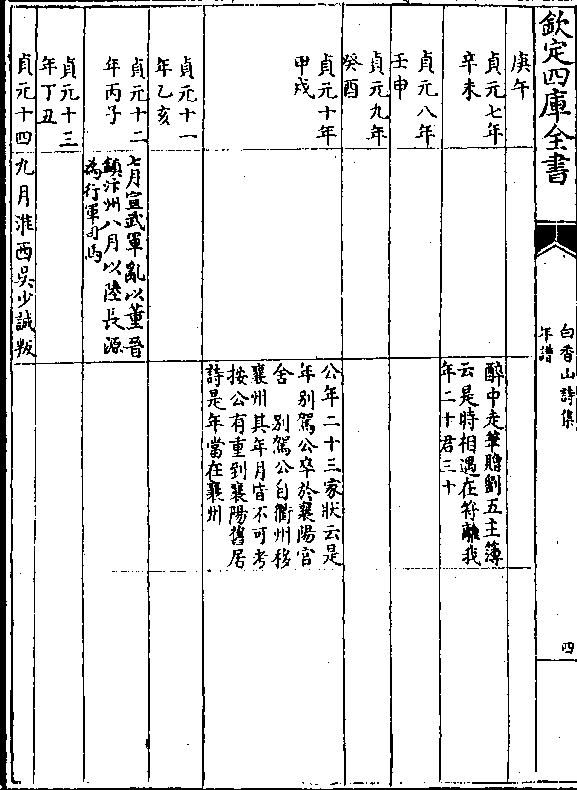 欽定四庫全書
白香山詩集
年譜
四
庚午
貞元七年
辛未
醉中走筆贈劉五主簿
云是時相遇在符離我
年二十君三十
貞元八年
壬申
貞元九年
癸酉
貞元十年
甲戌
公年二十三家狀云是
年别駕公卒於襄陽官
舍 别駕公自衢州移
襄州其年月皆不可考
按公有重到襄陽舊居
詩是年當在襄州
貞元十一
年乙亥
貞元十二
年丙子
七月宣武軍亂以董晉
鎮汴州八月以陸長源
為行軍司馬
貞元十三
年丁丑
貞元十四
九月淮西吳少誠叛